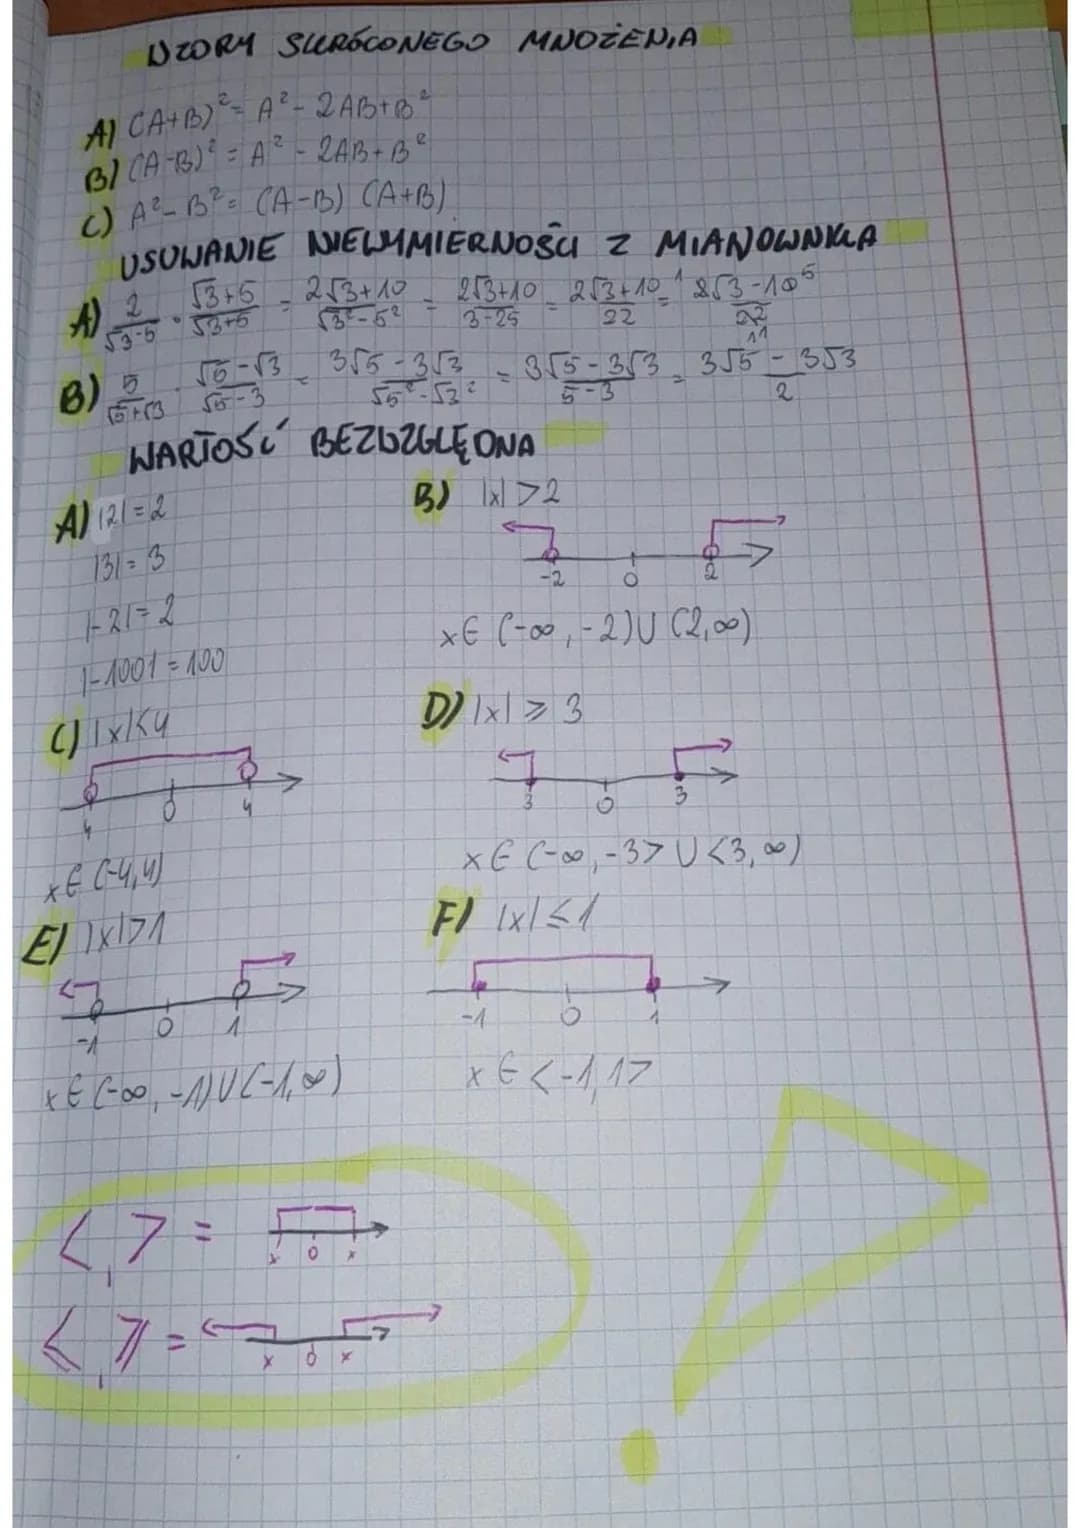 WZORY SKRÓCONEGO MNOŻENIA
A) (A+B)² = A² - 2AB + B²
B) (A-B)² = A² - 2AB + B²
C) A² - B² = (A-B) (A+B)
USUWANIE NIEWYMIERNOŚCI Z MIANOWNIKA
A) 2/(√3-5) · (√3+5)/(√3+5) = (2√3+10)/(√3²-5²) = (2√3+10)/(3-25) = (2√3+10)/22 = (¹2√3-10⁵)/(22 11)
B) 5/(√5+√3) · (√5-√3)/(√5-3) = (3√5-3√3)/(√5²-√3²) = (3√5-3√3)/(5-3) = (3√5-3√3)/2
WARTOŚĆ BEZWZGLĘDNA
A) |2| = 2
|3| = 3
|-2| = 2
|-100| = 100
B) |x| > 2
-2 0 2
x ∈ (-∞, -2) ∪ (2, ∞)
C) |x| < 4
4 0 4
x ∈ (-4, 4)
D) |x| ≥ 3
3 0 3
x ∈ (-∞, -3> ∪ <3, ∞)
E) |x| > 1
-1 0 1
x ∈ (-∞, -1) ∪ (-1, ∞)
F) |x| ≤ 1
-1 0 1
x ∈ <-1, 1>
<, > =
x 0 x
≤, ≥ =
x 0 x
!